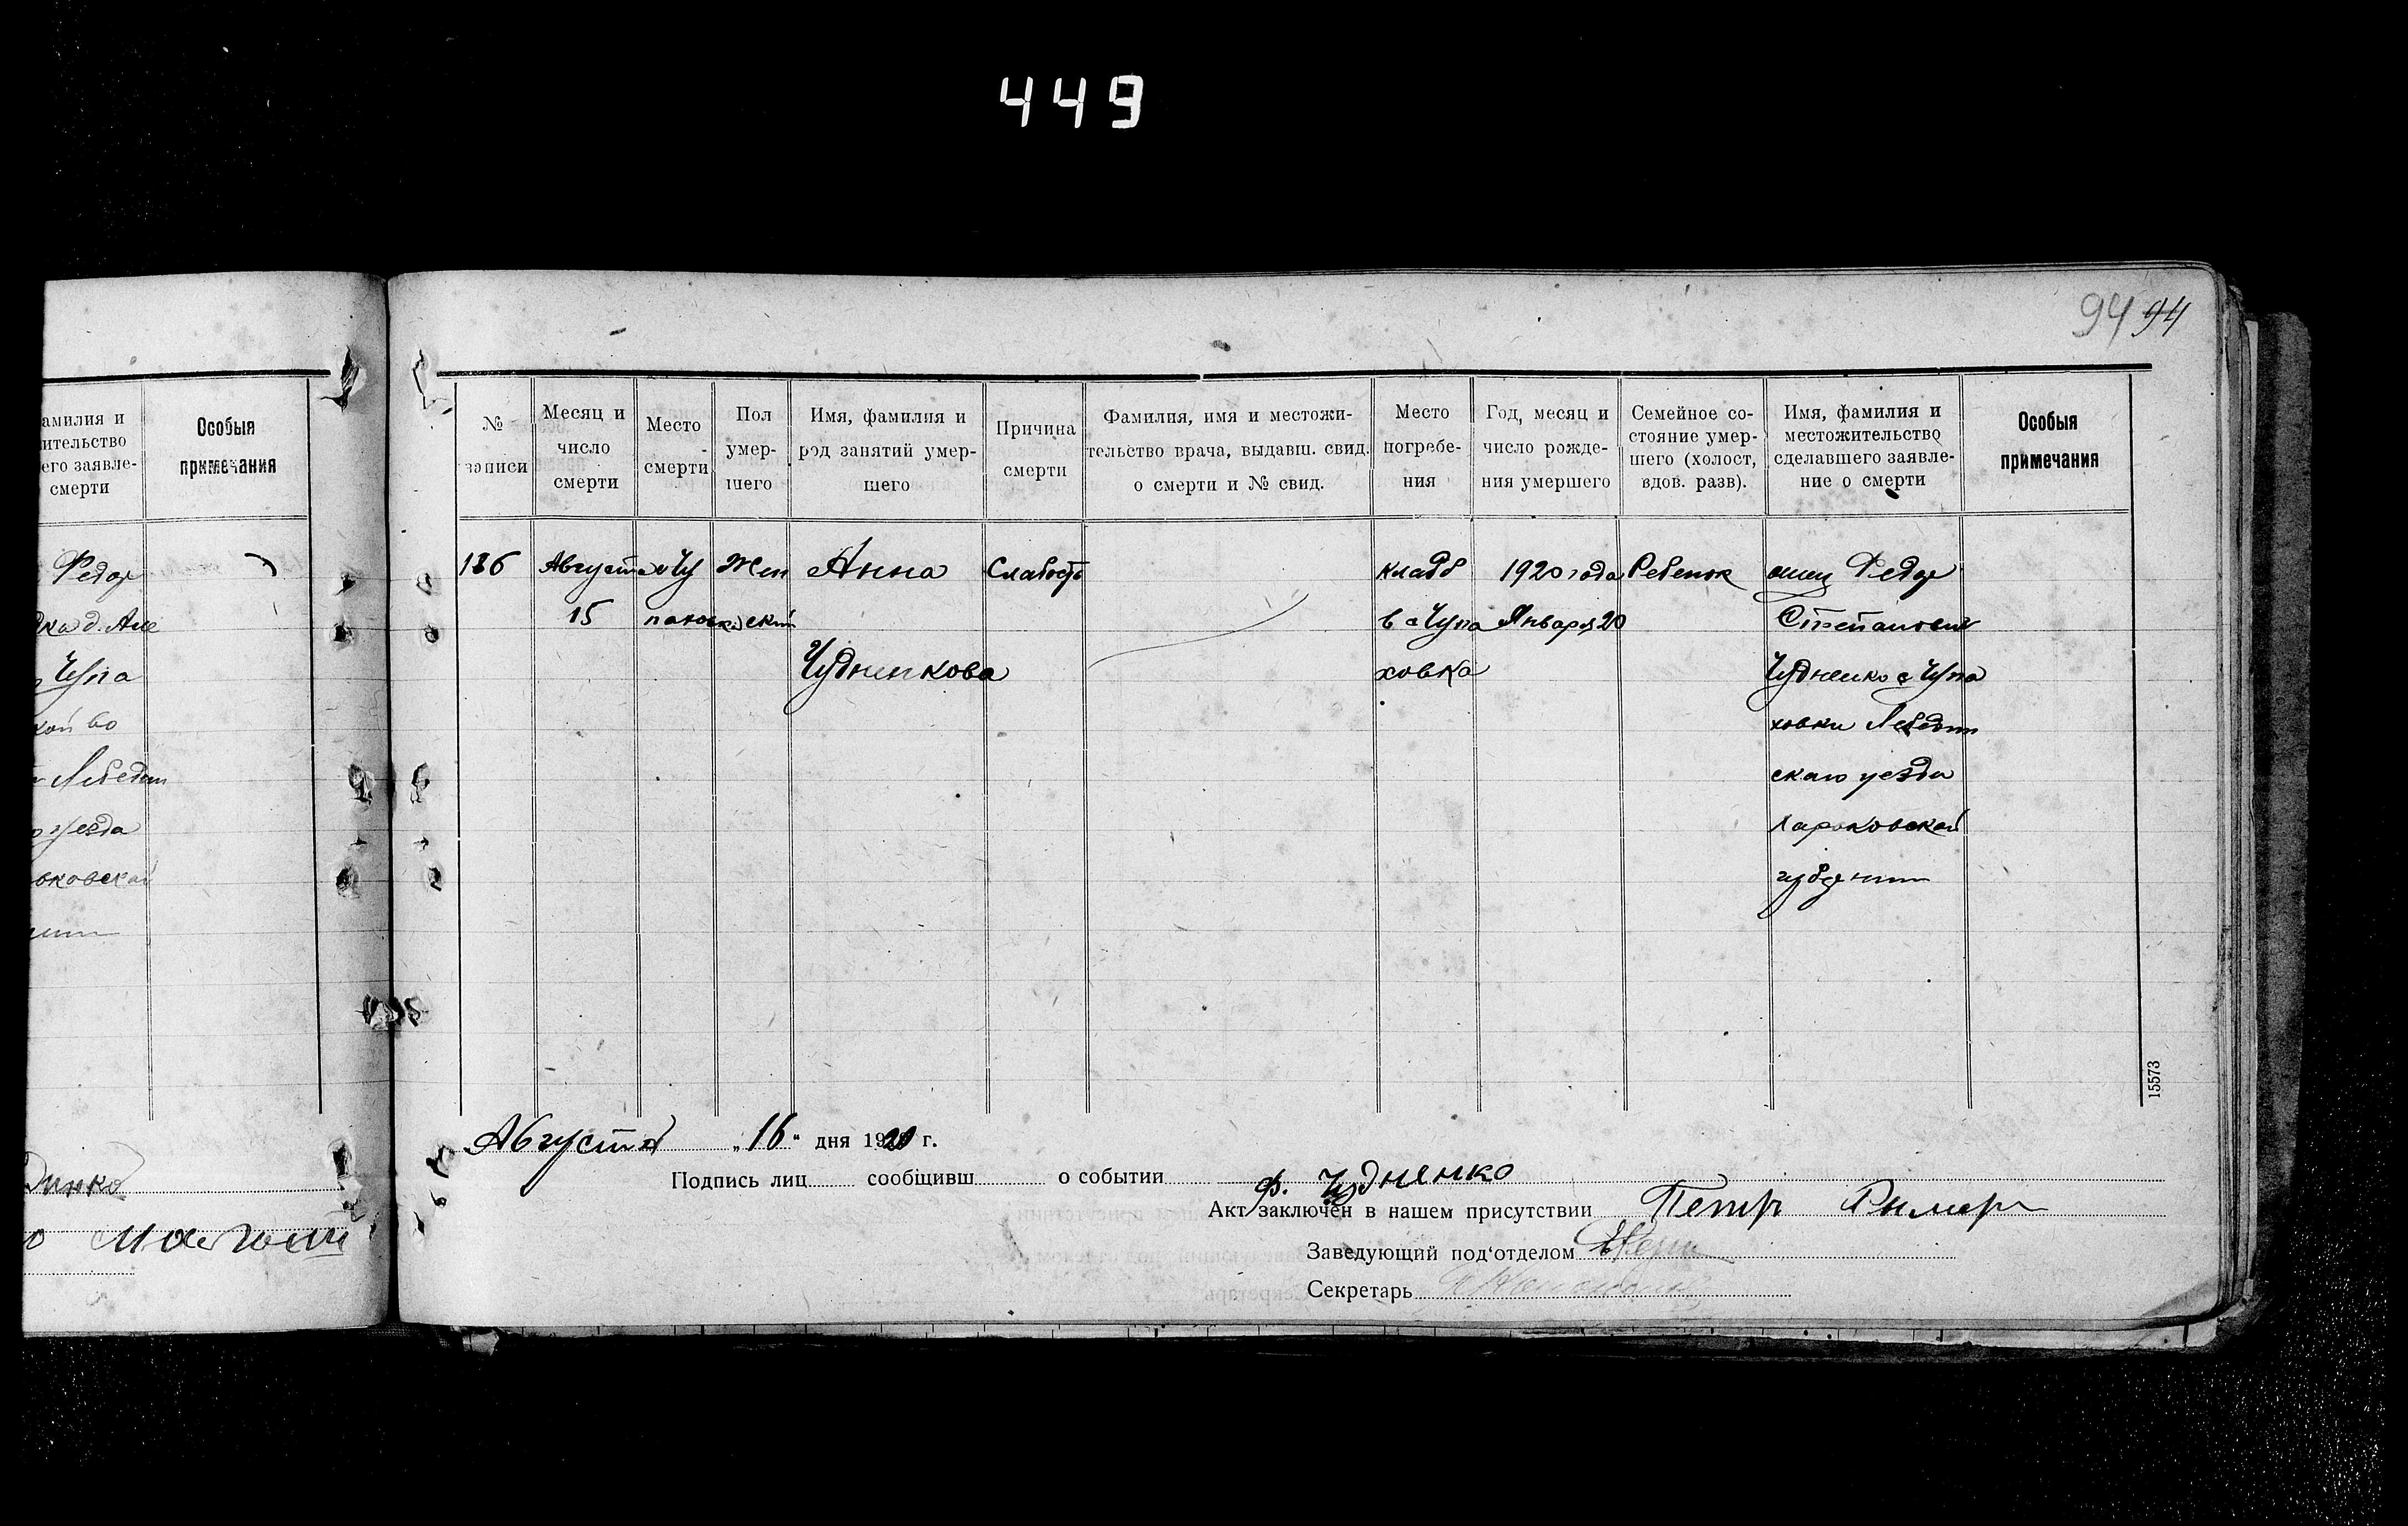 449
94 94
амилия и
ительство
его заявле-
смерти
Особыя
примечания
Федор
Чупа
Лебедин
уезда
ьковской
№
записи
Месяц и
число
смерти
Место
смерти
Пол
умер-
шего
Имя, фамилия и
род занятий умер-
шего
Причина
смерти
Фамилия, имя и местожи-
тельство врача, выдавш. свид.
о смерти и № свид.
Место
погребе-
ния
Год, месяц и
число рожде-
ния умершего
Семейное со-
стояние умер-
шего (холост,
вдов. разв).
Имя, фамилия и
местожительство
сделавшего заявле-
ние о смерти
Особыя
примечания
136
Август
15
Жен
ский
Анна
Чудненкова
Слабость
кладб
в с Чупа
ховка
1920 года
Января 20
Ребенок
отец Федор
Степанович
Чудненко с Чупа
ховки Лебедин
скаго уезда
Харьковской
губернии
Августа „16“ дня 1920 г.
Подпись лиц сообщивш о событии Ф. Чудненко
Акт заключен в нашем присутствии Петр
Заведующий под‘отделом
Секретарь
15573